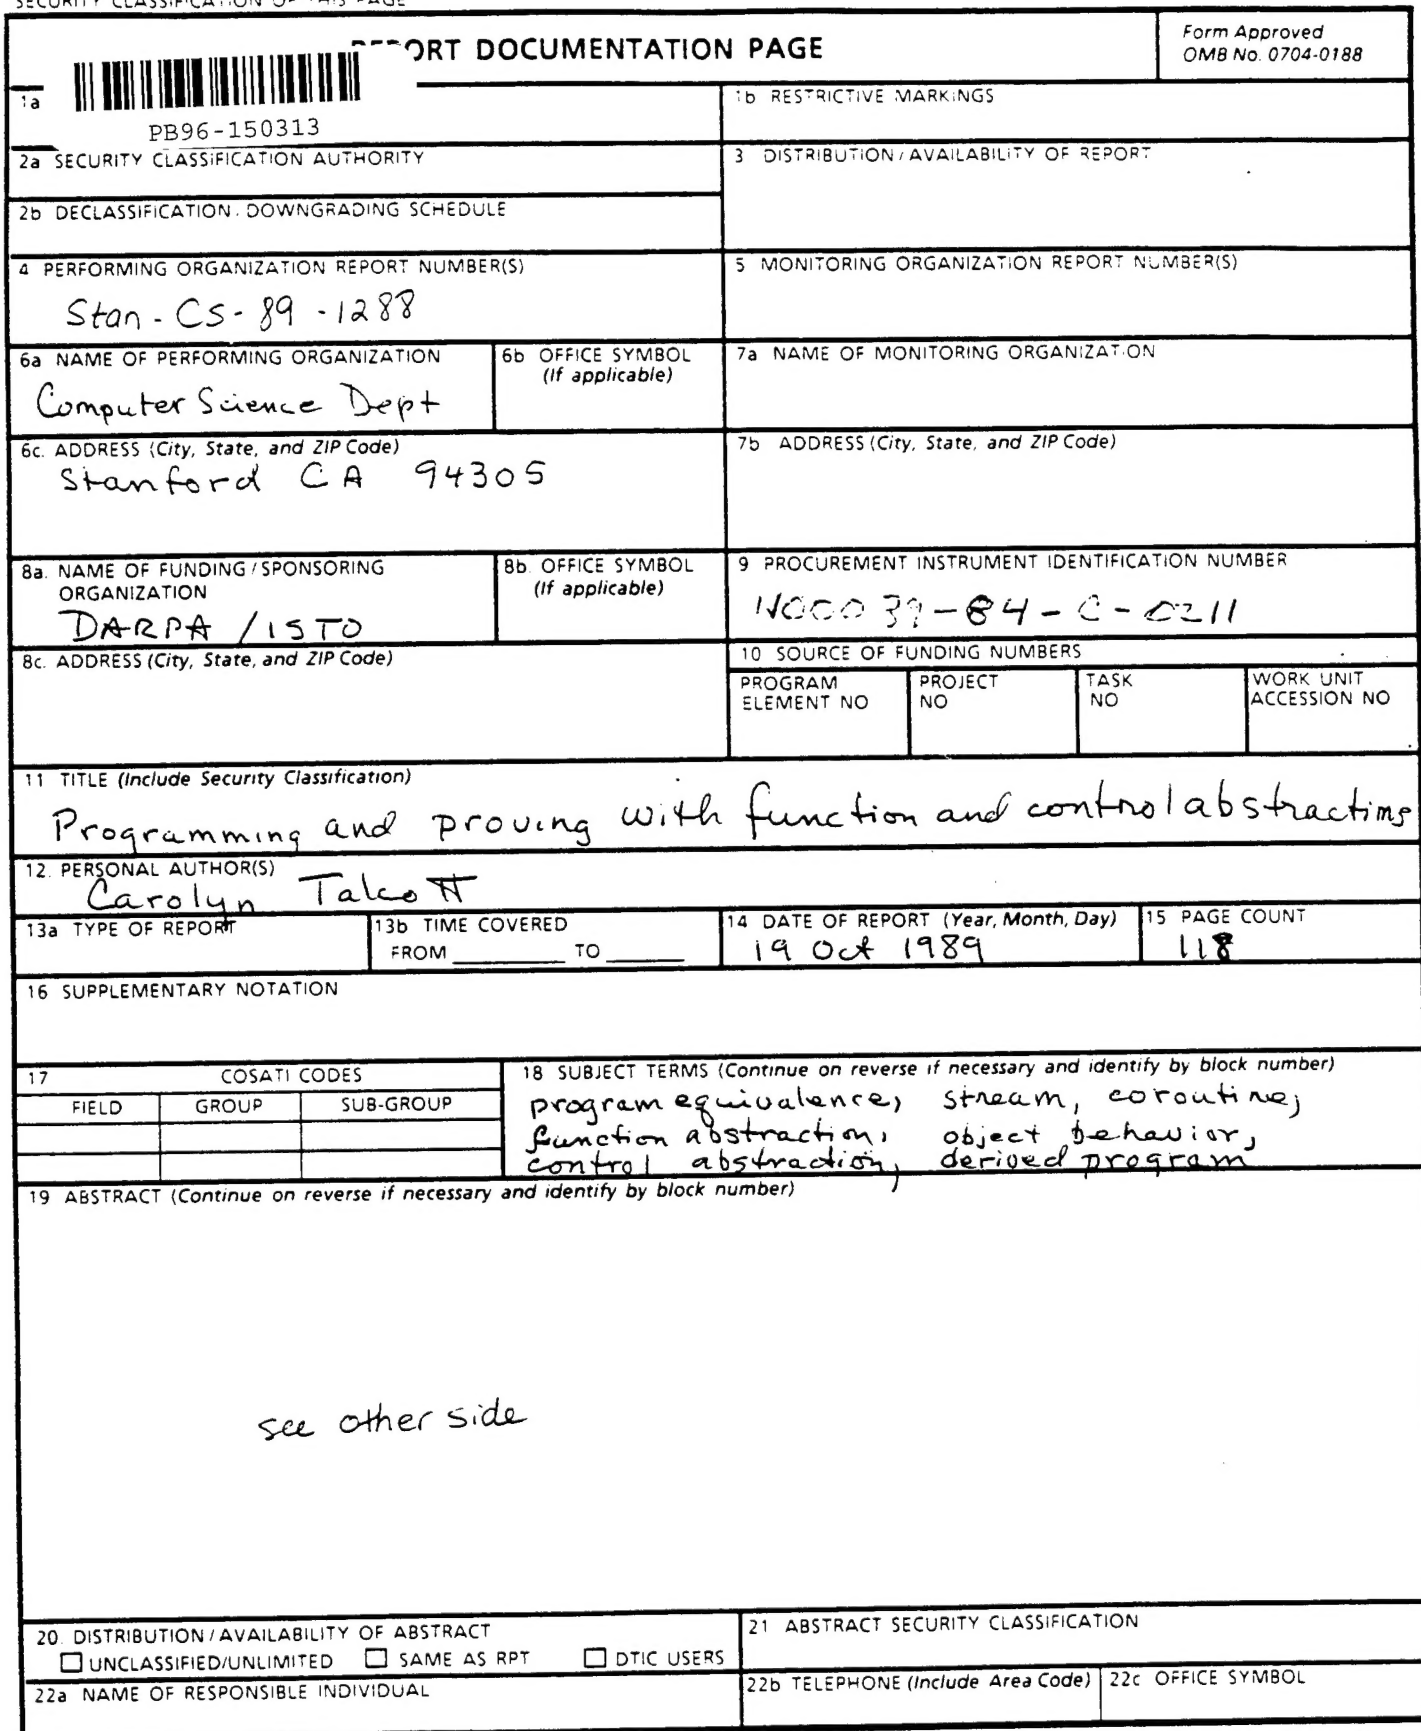 SECURITY CLASSIFICATION OF THIS PAGE
REPORT DOCUMENTATION PAGE
Form Approved
OMB No. 0704-0188
1a
PB96-150313
1b RESTRICTIVE MARKINGS
2a SECURITY CLASSIFICATION AUTHORITY
3 DISTRIBUTION / AVAILABILITY OF REPORT
2b DECLASSIFICATION. DOWNGRADING SCHEDULE
4 PERFORMING ORGANIZATION REPORT NUMBER(S)
Stan - CS - 89 - 1288
5 MONITORING ORGANIZATION REPORT NUMBER(S)
6a NAME OF PERFORMING ORGANIZATION
Computer Science Dept
6b OFFICE SYMBOL
(If applicable)
7a NAME OF MONITORING ORGANIZATION
6c. ADDRESS (City, State, and ZIP Code)
Stanford CA 94305
7b ADDRESS (City, State, and ZIP Code)
8a. NAME OF FUNDING / SPONSORING
ORGANIZATION
DARPA / ISTO
8b. OFFICE SYMBOL
(If applicable)
9 PROCUREMENT INSTRUMENT IDENTIFICATION NUMBER
N00039-84-C-0211
8c. ADDRESS (City, State, and ZIP Code)
10 SOURCE OF FUNDING NUMBERS
PROGRAM
ELEMENT NO
PROJECT
NO
TASK
NO
WORK UNIT
ACCESSION NO
11 TITLE (Include Security Classification)
Programming and proving with function and control abstractions
12. PERSONAL AUTHOR(S)
Carolyn Talcott
13a TYPE OF REPORT
13b TIME COVERED
FROM TO
14 DATE OF REPORT (Year, Month, Day)
19 Oct 1989
15 PAGE COUNT
118
16 SUPPLEMENTARY NOTATION
17 COSATI CODES
FIELD GROUP SUB-GROUP
18 SUBJECT TERMS (Continue on reverse if necessary and identify by block number)
program equivalence, stream, coroutine,
function abstraction, object behavior,
control abstraction, derived program
19 ABSTRACT (Continue on reverse if necessary and identify by block number)
see other side
20. DISTRIBUTION / AVAILABILITY OF ABSTRACT
UNCLASSIFIED/UNLIMITED SAME AS RPT DTIC USERS
21 ABSTRACT SECURITY CLASSIFICATION
22a NAME OF RESPONSIBLE INDIVIDUAL
22b TELEPHONE (Include Area Code)
22c OFFICE SYMBOL